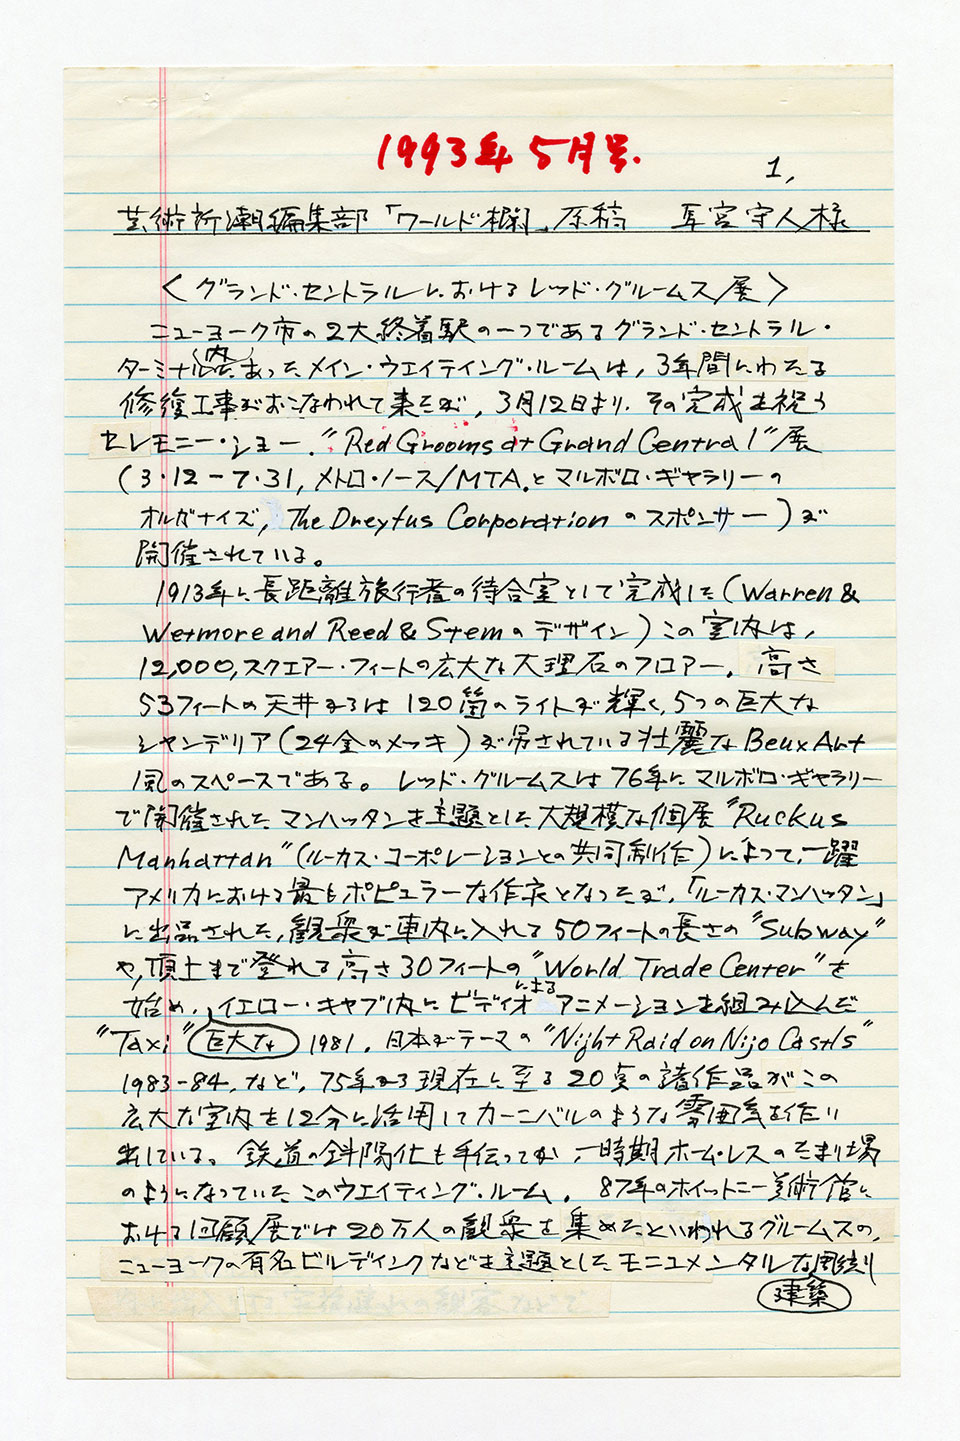 1993年5月号.
1,
芸術新潮編集部「ワールド欄」原稿 宮守人様
〈グランド・セントラルにおけるレッド・グルームス展〉
ニューヨーク市の2大終着駅の一つであるグランド・セントラル・
ターミナル内にあったメイン・ウエイティング・ルームは,3年間にわたる
修復工事がおこなわれて来たが,3月12日より,その完成を祝う
セレモニー・ショー,"Red Grooms at Grand Central"展
(3・12-7・31,メトロ・ノース/MTA.とマルボロ・ギャラリーの
オルガナイズ,The Dreyfus Corporationのスポンサー)が
開催されている。
1913年に長距離旅行者の待合室として完成した(Warren &
Wetmore and Reed & Stemのデザイン)この室内は,
12,000,スクエアー・フィートの広大な大理石のフロアー,高さ
53フィートの天井からは120箇のライトが輝く,5つの巨大な
シャンデリア(24金のメッキ)が吊されている壮麗なBeux Art
風のスペースである。レッド・グルームスは76年にマルボロ・ギャラリー
で開催されたマンハッタンを主題とした大規模な個展"Ruckus
Manhattan"(ルーカス・コーポレーションとの共同制作)によって,一躍
アメリカにおける最もポピュラーな作家となったが,「ルーカス・マンハッタン」
に出品された,観衆が車内に入れる50フィートの長さの"Subway"
や,頂上まで登れる高さ30フィートの"World Trade Center"を
始め,イエロー・キャブ内にビデオによるアニメーションを組み込んだ
"Taxi"巨大な1981,日本がテーマの"Night Raid on Nijo Castls"
1983-84,など,75年から現在に至る20点の諸作品がこの
広大な室内を12分に活用してカーニバルのような雰囲気を作り
出している。鉄道の斜陽化も手伝ってか,一時期ホーム・レスのたまり場
のようになっていたこのウエイティング・ルーム,87年のホイットニー美術館に
おける回顧展では20万人の観衆を集めたといわれるグルームスの,
ニューヨークの有名ビルディングなどを主題としたモニュメンタルな彫刻
建築